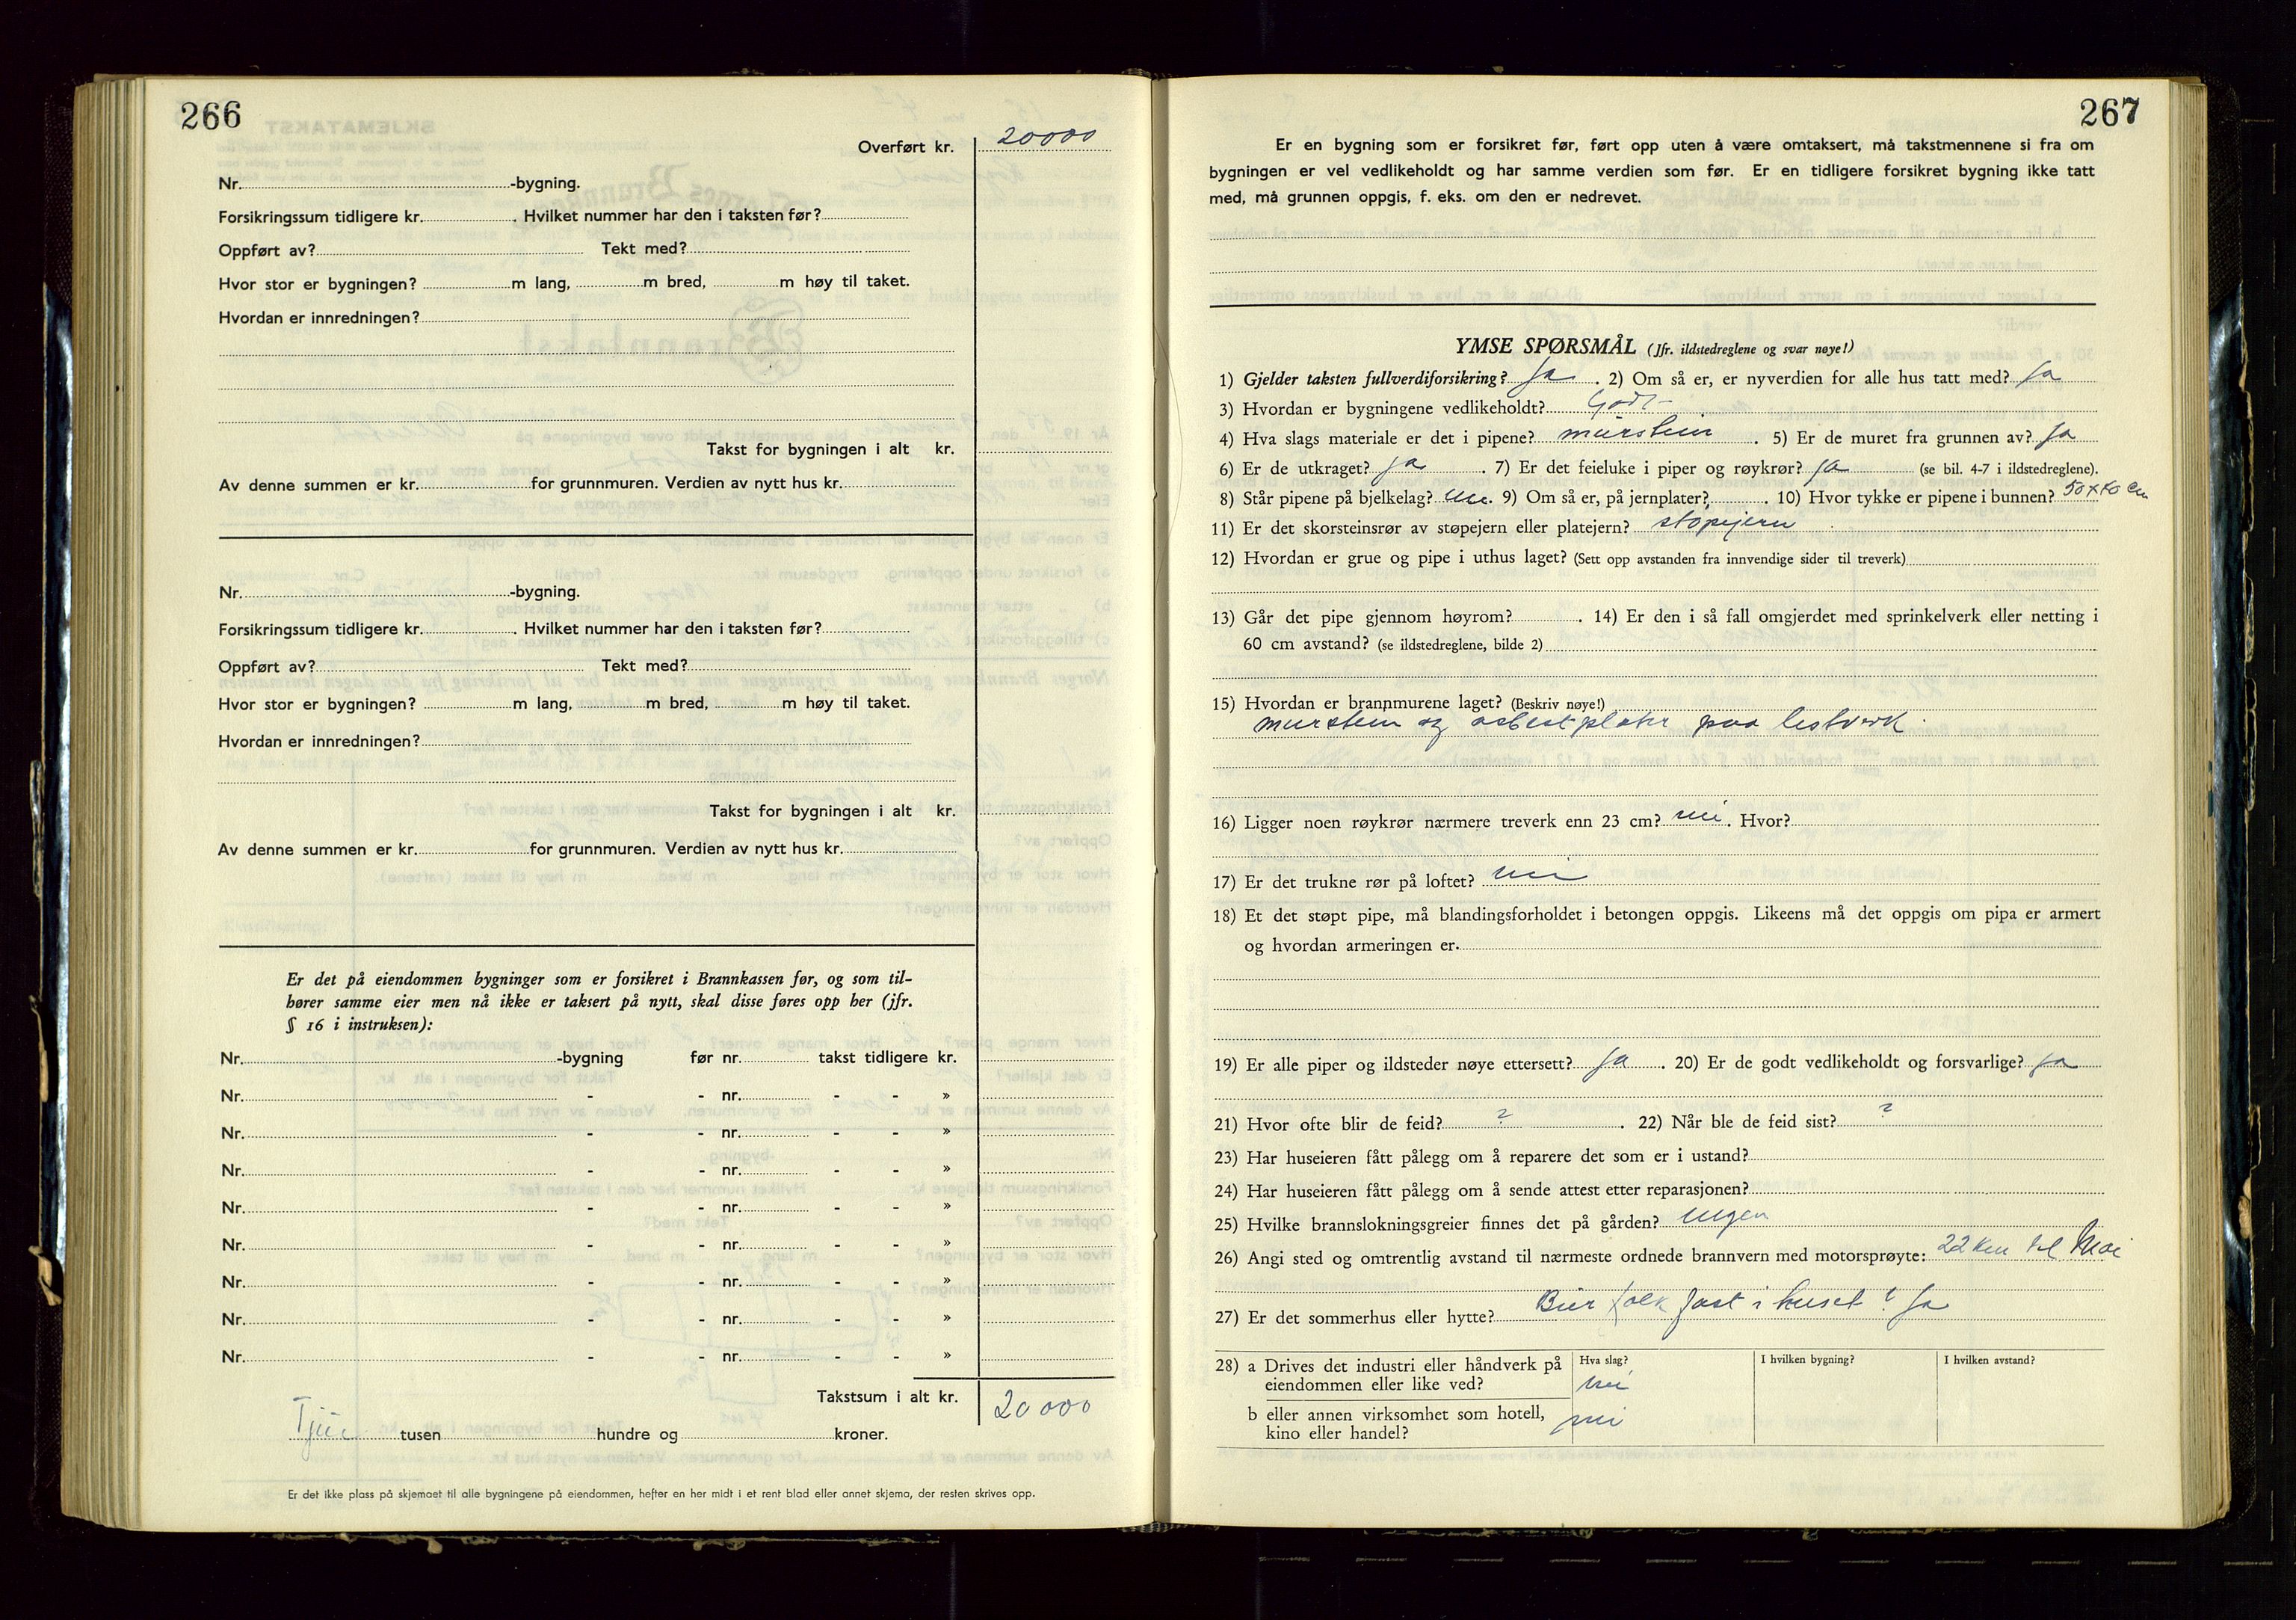 266
Overført kr. 20000
Nr. -bygning.
Forsikringssum tidligere kr. . Hvilket nummer har den i taksten før?
Oppført av? Tekt med?
Hvor stor er bygningen? m lang, m bred, m høy til taket.
Hvordan er innredningen?
Takst for bygningen i alt kr.
Av denne summen er kr. for grunnmuren. Verdien av nytt hus kr.
Nr. -bygning.
Forsikringssum tidligere kr. . Hvilket nummer har den i taksten før?
Oppført av? Tekt med?
Hvor stor er bygningen? m lang, m bred, m høy til taket.
Hvordan er innredningen?
Takst for bygningen i alt kr.
Av denne summen er kr. for grunnmuren. Verdien av nytt hus kr.
Er det på eiendommen bygninger som er forsikret i Brannkassen før, og som til-
hører samme eier men nå ikke er taksert på nytt, skal disse føres opp her (jfr.
§ 16 i instruksen):
Nr. -bygning før nr. takst tidligere kr.
Nr. - - nr. - - »
Nr. - - nr. - - »
Nr. - - nr. - - »
Nr. - - nr. - - »
Nr. - - nr. - - »
Nr. - - nr. - - »
Nr. - - nr. - - »
Nr. - - nr. - - »
Takstsum i alt kr. 20 000
Tjue tusen hundre og kroner.
Er det ikke plass på skjemaet til alle bygningene på eiendommen, hefter en her midt i et rent blad eller annet skjema, der resten skrives opp.
267
Er en bygning som er forsikret før, ført opp uten å være omtaksert, må takstmennene si fra om
bygningen er vel vedlikeholdt og har samme verdien som før. Er en tidligere forsikret bygning ikke tatt
med, må grunnen oppgis, f. eks. om den er nedrevet.
YMSE SPØRSMÅL (Jfr. ildstedreglene og svar nøye!)
1) Gjelder taksten fullverdiforsikring? Ja . 2) Om så er, er nyverdien for alle hus tatt med? Ja
3) Hvordan er bygningene vedlikeholdt? Godt
4) Hva slags materiale er det i pipene? murstein . 5) Er de muret fra grunnen av? Ja
6) Er de utkraget? Ja . 7) Er det feieluke i piper og røykrør? Ja (se bil. 4-7 i ildstedreglene).
8) Står pipene på bjelkelag? nei. 9) Om så er, på jernplater? . 10) Hvor tykke er pipene i bunnen? 50 x 50 cm
11) Er det skorsteinsrør av støpejern eller platejern? støpejern
12) Hvordan er grue og pipe i uthus laget? (Sett opp avstanden fra innvendige sider til treverk)
13) Går det pipe gjennom høyrom? . 14) Er den i så fall omgjerdet med sprinkelverk eller netting i
60 cm avstand? (se ildstedreglene, bilde 2)
15) Hvordan er brannmurene laget? (Beskriv nøye!)
murstein og asbestplater paa lestverk
16) Ligger noen røykrør nærmere treverk enn 23 cm? nei . Hvor?
17) Er det trukne rør på loftet? nei
18) Et det støpt pipe, må blandingsforholdet i betongen oppgis. Likeens må det oppgis om pipa er armert
og hvordan armeringen er.
19) Er alle piper og ildsteder nøye ettersett? Ja . 20) Er de godt vedlikeholdt og forsvarlige? Ja
21) Hvor ofte blir de feid? ? . 22) Når ble de feid sist? ?
23) Har huseieren fått pålegg om å reparere det som er i ustand?
24) Har huseieren fått pålegg om å sende attest etter reparasjonen?
25) Hvilke brannslokningsgreier finnes det på gården? Ingen
26) Angi sted og omtrentlig avstand til nærmeste ordnede brannvern med motorsprøyte: 22 km til Moi
27) Er det sommerhus eller hytte? Bur folk fast i huset? Ja
28) a Drives det industri eller håndverk på Hva slag? I hvilken bygning? I hvilken avstand?
eiendommen eller like ved? nei
b eller annen virksomhet som hotell, nei
kino eller handel?